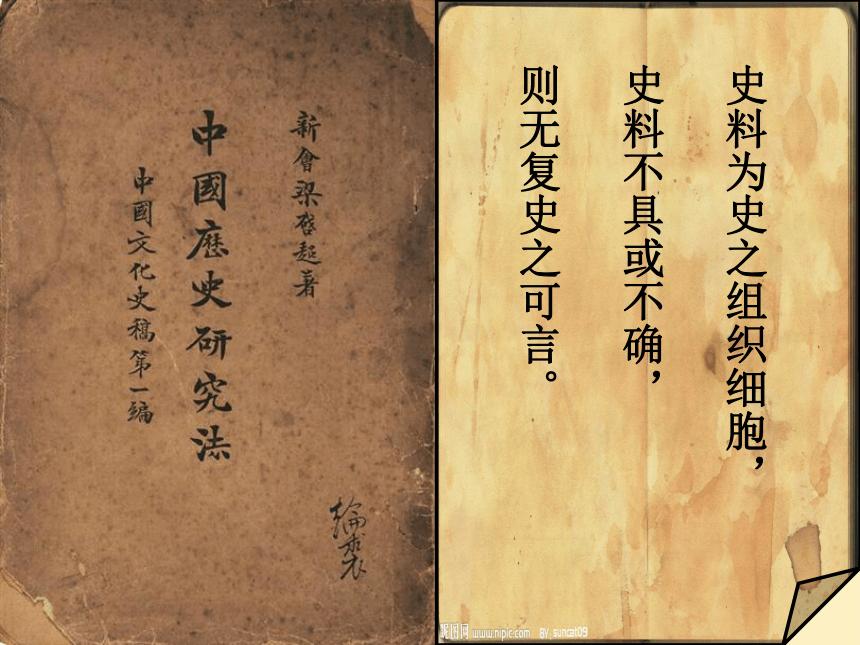 新會梁啓超著
中國歷史研究法
中國文化史稿第一編
史料为史之组织细胞，
史料不具或不确，
则无复史之可言。
昵图网 www.nipic.com BY suncat09